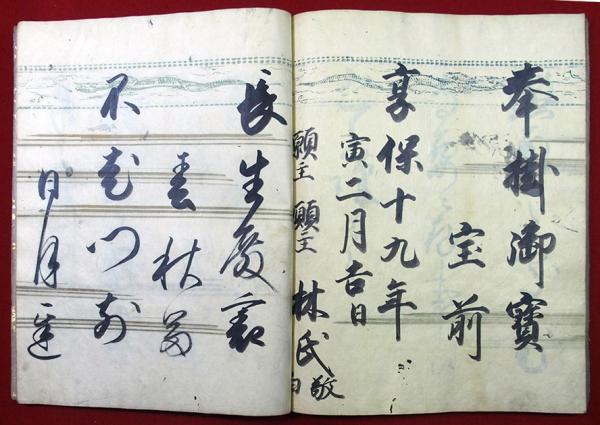 奉掛御寶
宝前
享保十九年
寅二月吉日
願主 願主 林氏 敬白
長生殿裏
春秋富
不老門前
日月遅